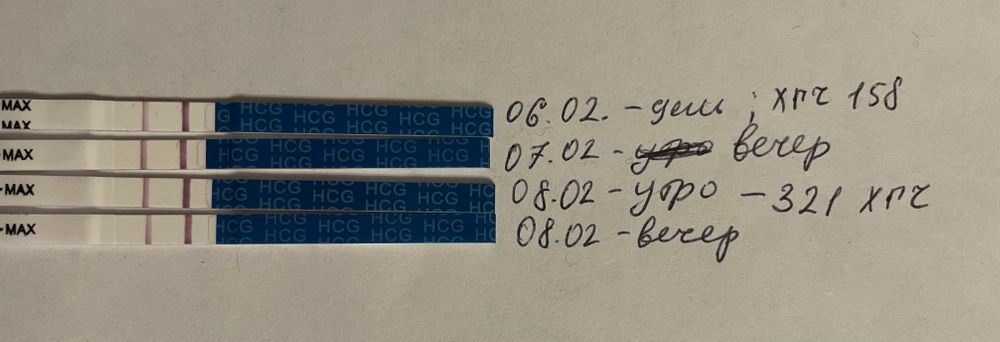 MAX HCG HCG HCG HCG 06.02. - день ; ХГЧ 158
MAX HCG HCG HCG HCG
MAX HCG HCG HCG 07.02 - утро вечер
HCG HCG HCG HCG
MAX HCG HCG HCG HCG 08.02 - утро - 321 ХГЧ
HCG HCG HCG
MAX HCG HCG HCG HCG 08.02 - вечер
HCG HCG HCG